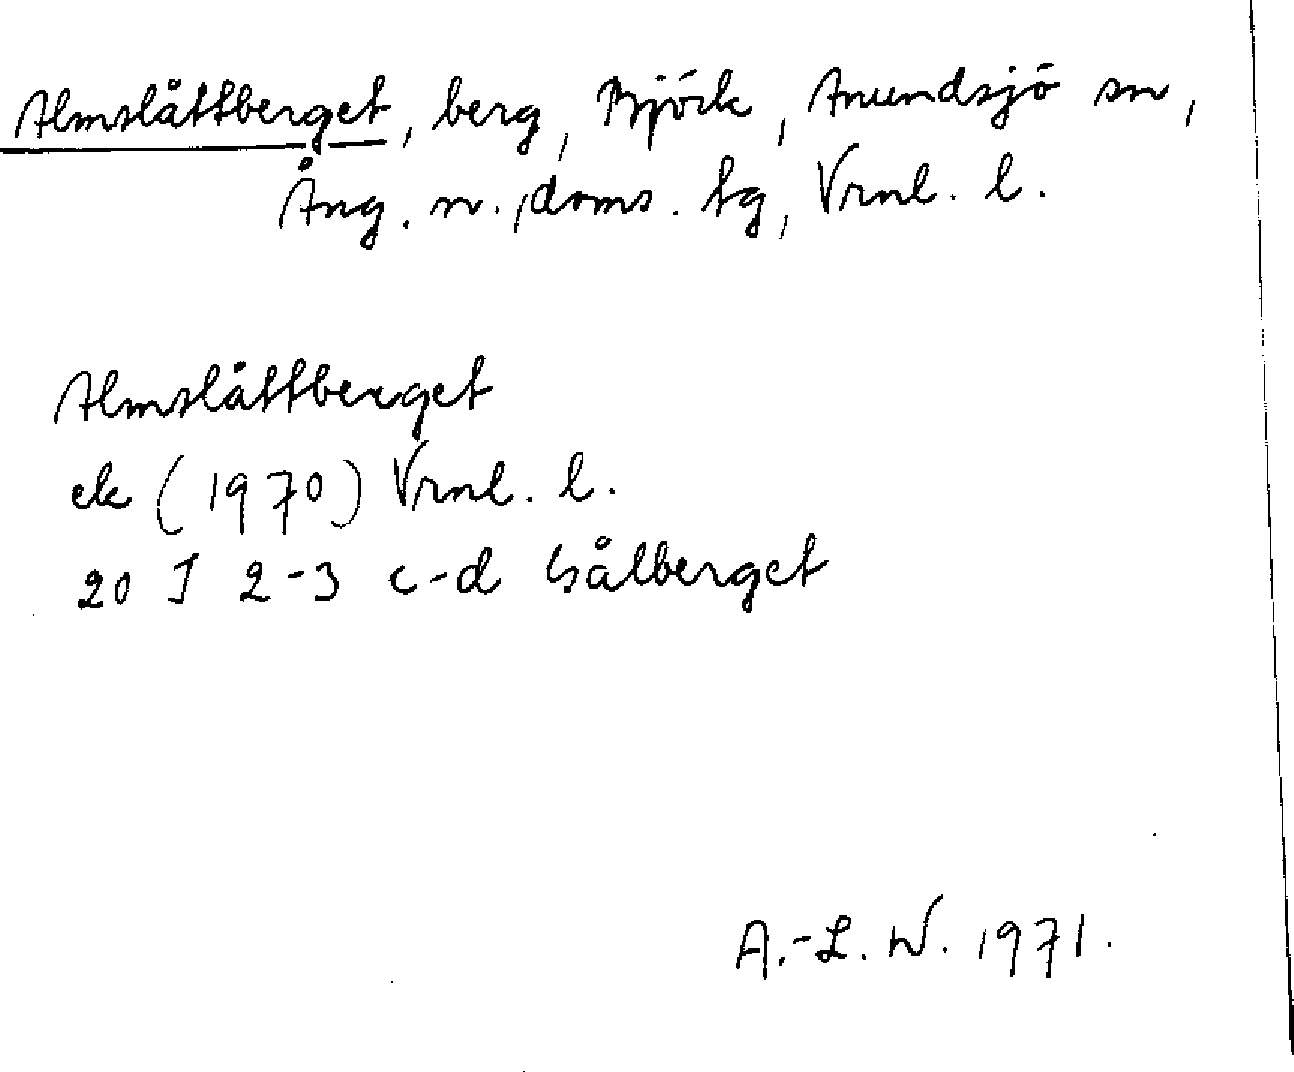 Almslåttberget, berg, Björk, Anundsjö sn,
Ång. n., doms. tg, Vrnl. l.
Almslåttberget
ek (1970) Vrnl. l.
20 J 2-3 c-d Gålberget
A.-L. W. 1971.